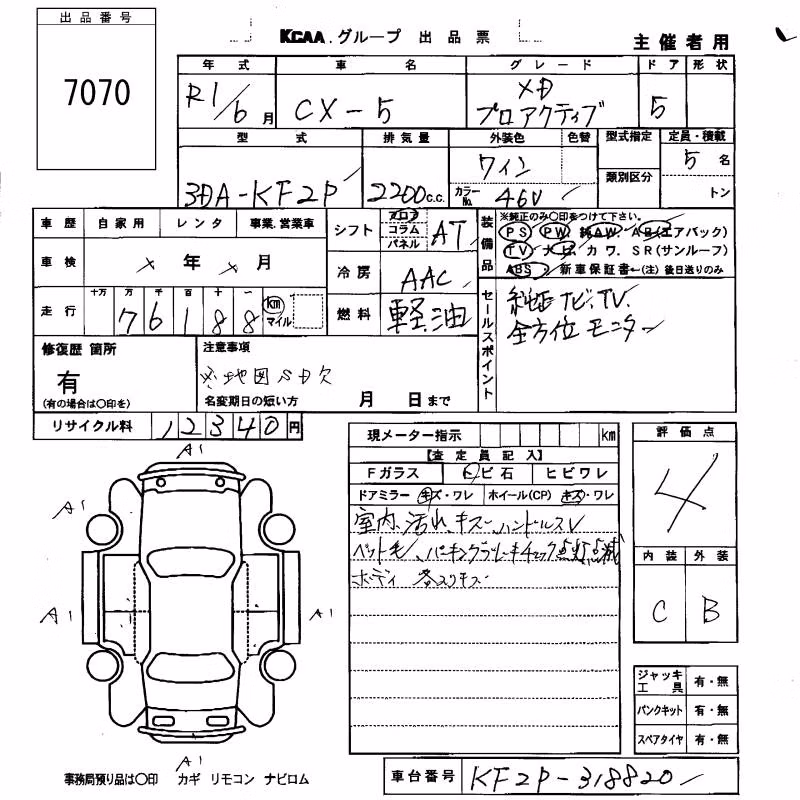 出品番号
7070
KCAA.グループ 出品票
主催者用
年式 車名 グレード ドア 形状
R1/6月 CX-5 XD プロアクティブ 5
型式 排気量 外装色 色替 型式指定 定員・積載
3DA-KF2P 2200c.c. ワイン カラーNo. 46V 類別区分 5名 トン
車歴 自家用 レンタ 事業.営業車
車検 年 月
走行 十万 万 千 百 十 一
76188 km マイル
シフト フロア コラム パネル AT
冷房 AAC
燃料 軽油
装備品
※純正のみ○印をつけて下さい。
PS PW 純AW AB(エアバック)
TV ナビ カワ. SR(サンルーフ)
ABS 新車保証書←(注) 後日送りのみ
セールスポイント
純正ナビ、TV.
全方位モニター
修復歴 箇所
有
(有の場合は○印を)
注意事項
※地図SD欠
名変期日の短い方 月 日まで
リサイクル料 12340円
現メーター指示 km
【査定員記入】
Fガラス トビ石 ヒビワレ
ドアミラー キズ・ワレ ホイール(CP) キズ・ワレ
室内、汚れ、キズ、ハンドルスレ
ペット毛、パーキングブレーキチェック点灯点滅
ボディ 各スリキズ
評価点
4
内装 外装
C B
A1
A1 A1
A1 A1
A1
ジャッキ工具 有・無
パンクキット 有・無
スペアタイヤ 有・無
事務局預り品は○印 カギ リモコン ナビロム
車台番号 KF2P-318820